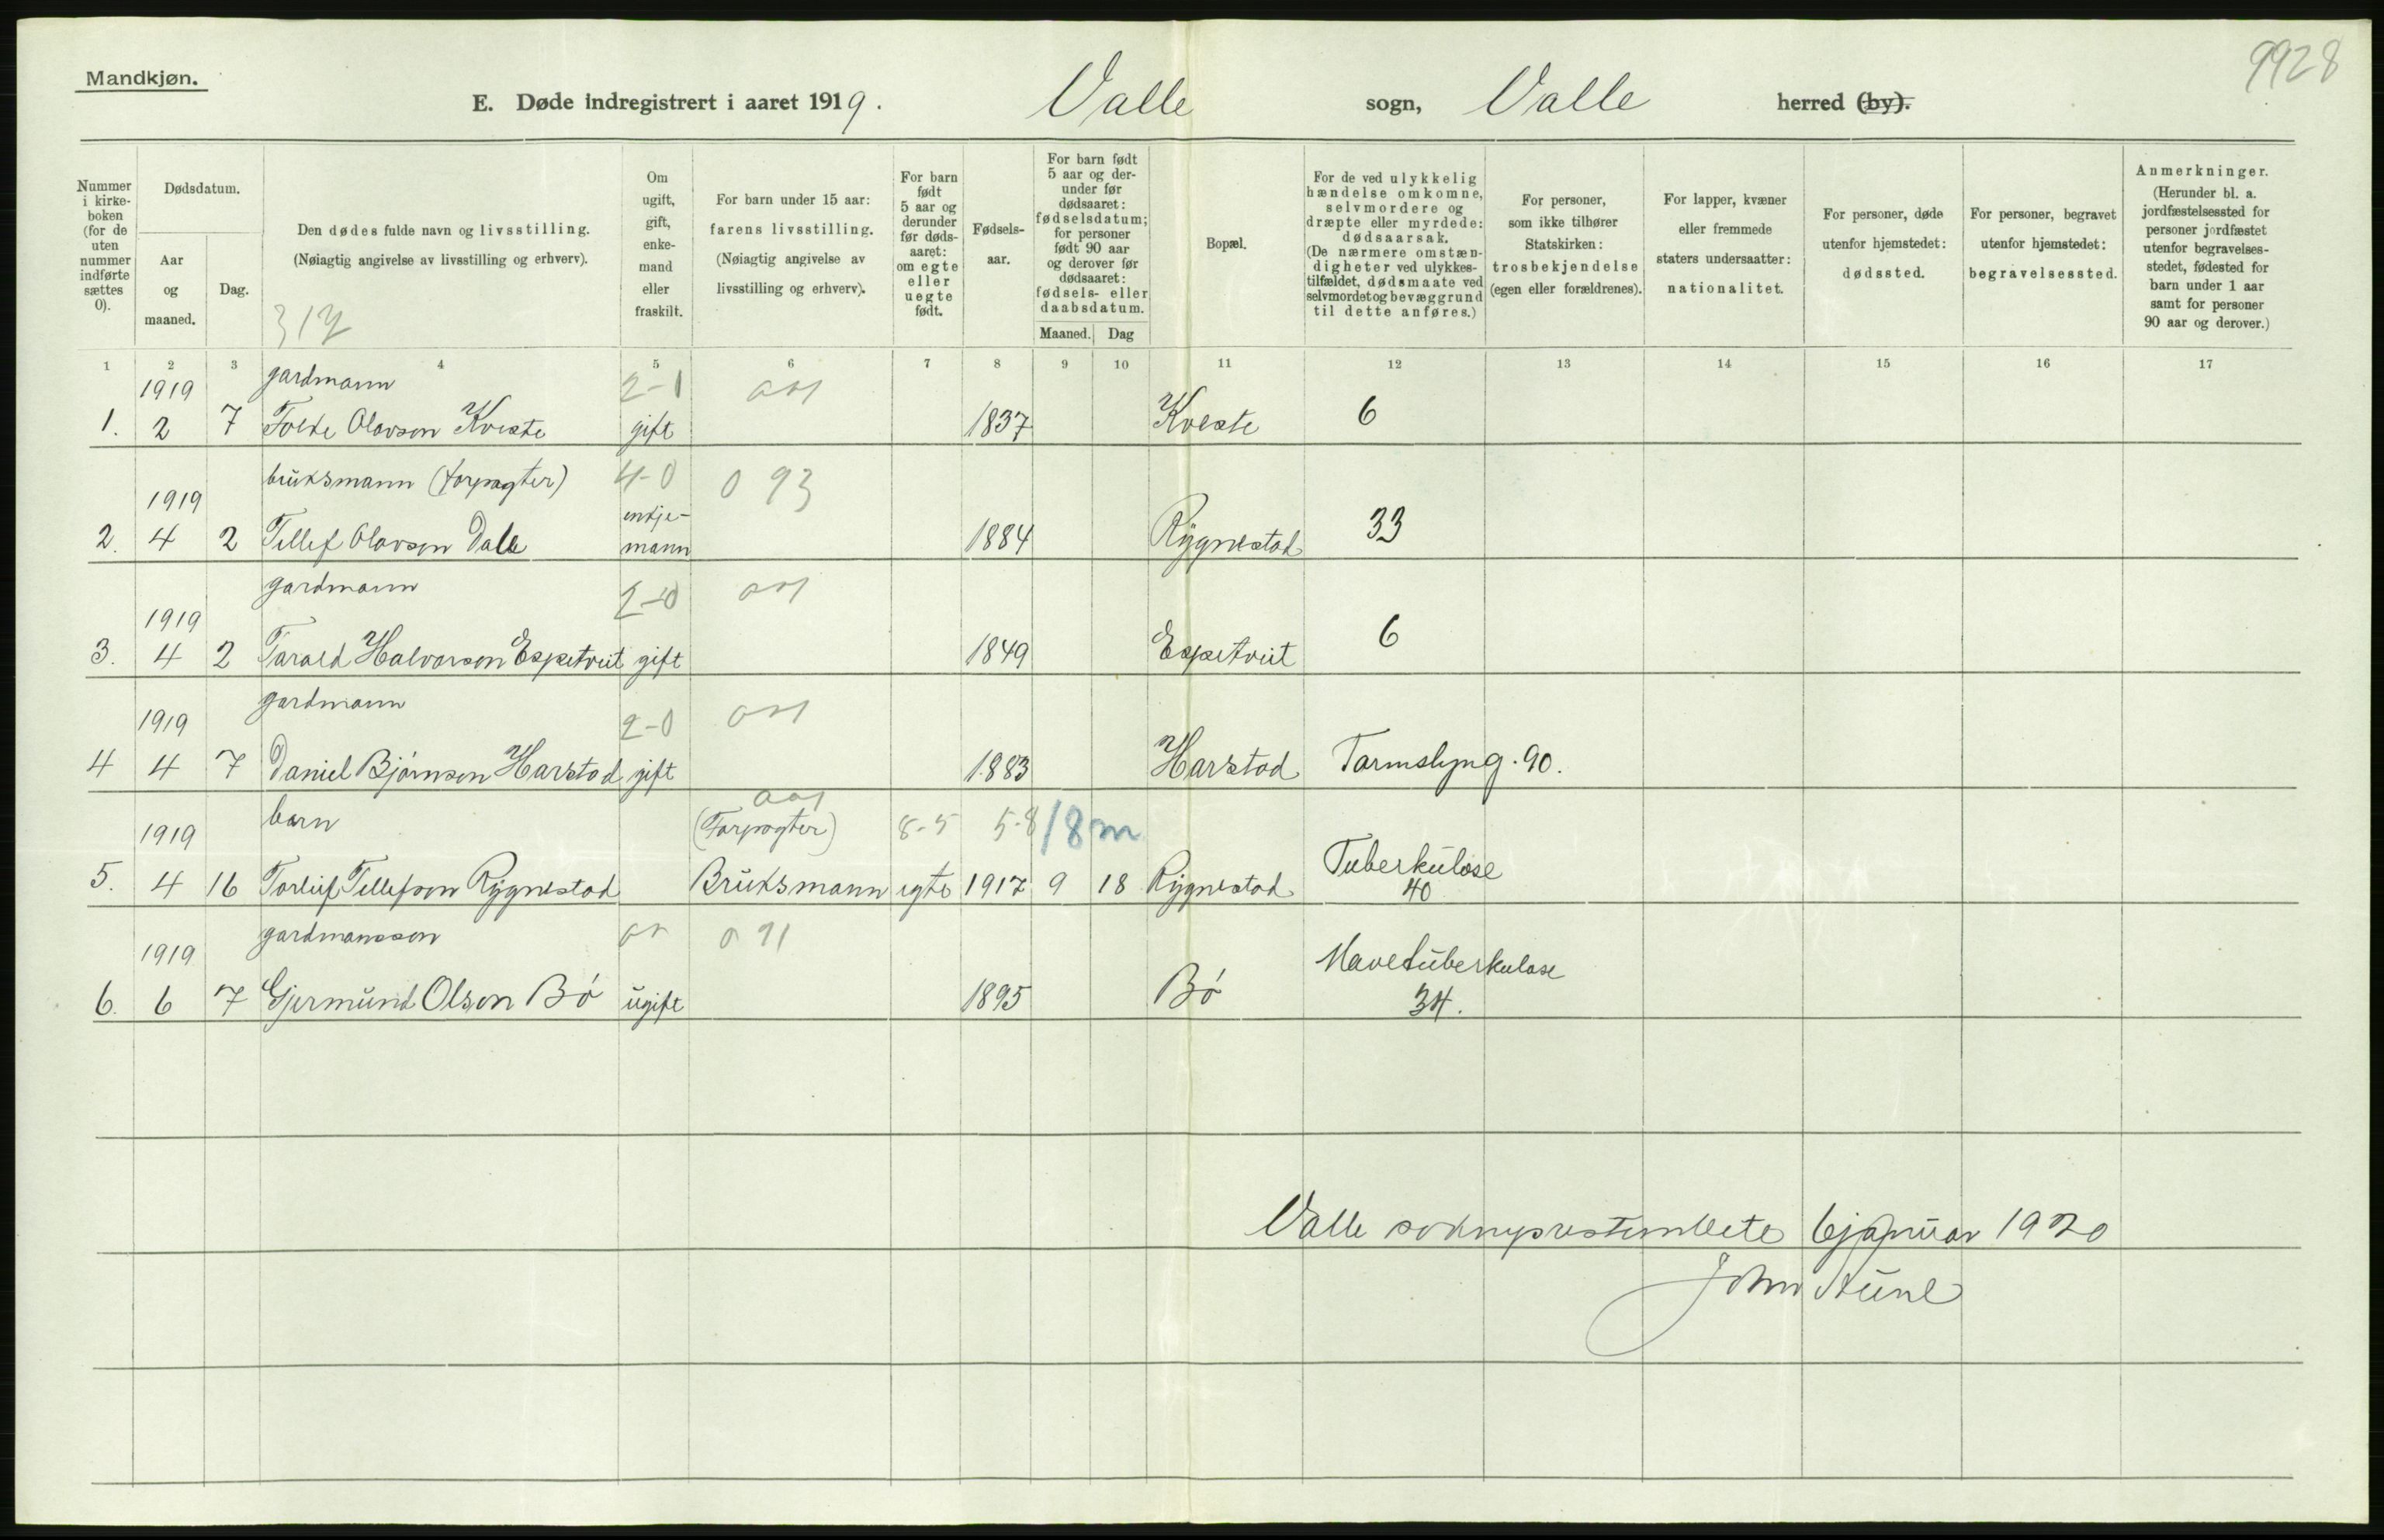 Mandkjøn.
9928
E. Døde indregistrert i aaret 1919. Valle sogn, Valle herred (by).
Nummer i kirkeboken (for de uten nummer indførte sættes 0).
Dødsdatum.
Aar og maaned.
Dag.
Den dødes fulde navn og livsstilling.
(Nøiagtig angivelse av livsstilling og erhverv).
Om ugift, gift, enkemand eller fraskilt.
For barn under 15 aar: farens livsstilling.
(Nøiagtig angivelse av livsstilling og erhverv).
For barn født 5 aar og derunder før dødsaaret: om egte eller uegte født.
Fødselsaar.
For barn født 5 aar og derunder før dødsaaret: fødselsdatum; for personer født 90 aar og derover før dødsaaret: fødsels- eller daabsdatum.
Maaned. Dag
Bopæl.
For de ved ulykkelig hændelse omkomne, selvmordere og dræpte eller myrdede: dødsaarsak.
(De nærmere omstændigheter ved ulykkestilfældet, dødsmaate ved selvmordet og bevæggrund til dette anføres.)
For personer, som ikke tilhører Statskirken: trosbekjendelse (egen eller forældrenes).
For lapper, kvæner eller fremmede staters undersaatter: nationalitet.
For personer, døde utenfor hjemstedet: dødssted.
For personer, begravet utenfor hjemstedet: begravelsessted.
Anmerkninger.
(Herunder bl. a. jordfæstelsessted for personer jordfæstet utenfor begravelsesstedet, fødested for barn under 1 aar samt for personer 90 aar og derover.)
1 2 3 4 5 6 7 8 9 10 11 12 13 14 15 16 17
1919 gardmann 2-1
1. 2 7 Olavson Kveste gift 1837 Kveste 6
bruksmann (forpagter) 4-0 0 93
1919 enkje-
2. 4 2 Tellef Olavson Dale mann 1884 Rygnestad 33
gardmann 2-0
1919
3. 4 2 Tarald Halvorson Espetveit gift 1849 Espetveit 6
gardmann
1919 2-0
4 4 7 Daniel Bjørnson Harstad gift 1883 Harstad Tarmslyng. 90.
barn
1919 (Forpagter) 8-5 5-8 18 m
5. 4 16 Torleif Tellefson Rygnestad Bruksmann egte 1917 9 18 Rygnestad Tuberkulose
40
gardmansson 0 91
1919 Mavetuberkulose
6. 6 7 Gjermund Olson Bø ugift 1895 Bø 34.
Valle soknyprestembete 6 januar 1920
John Aune